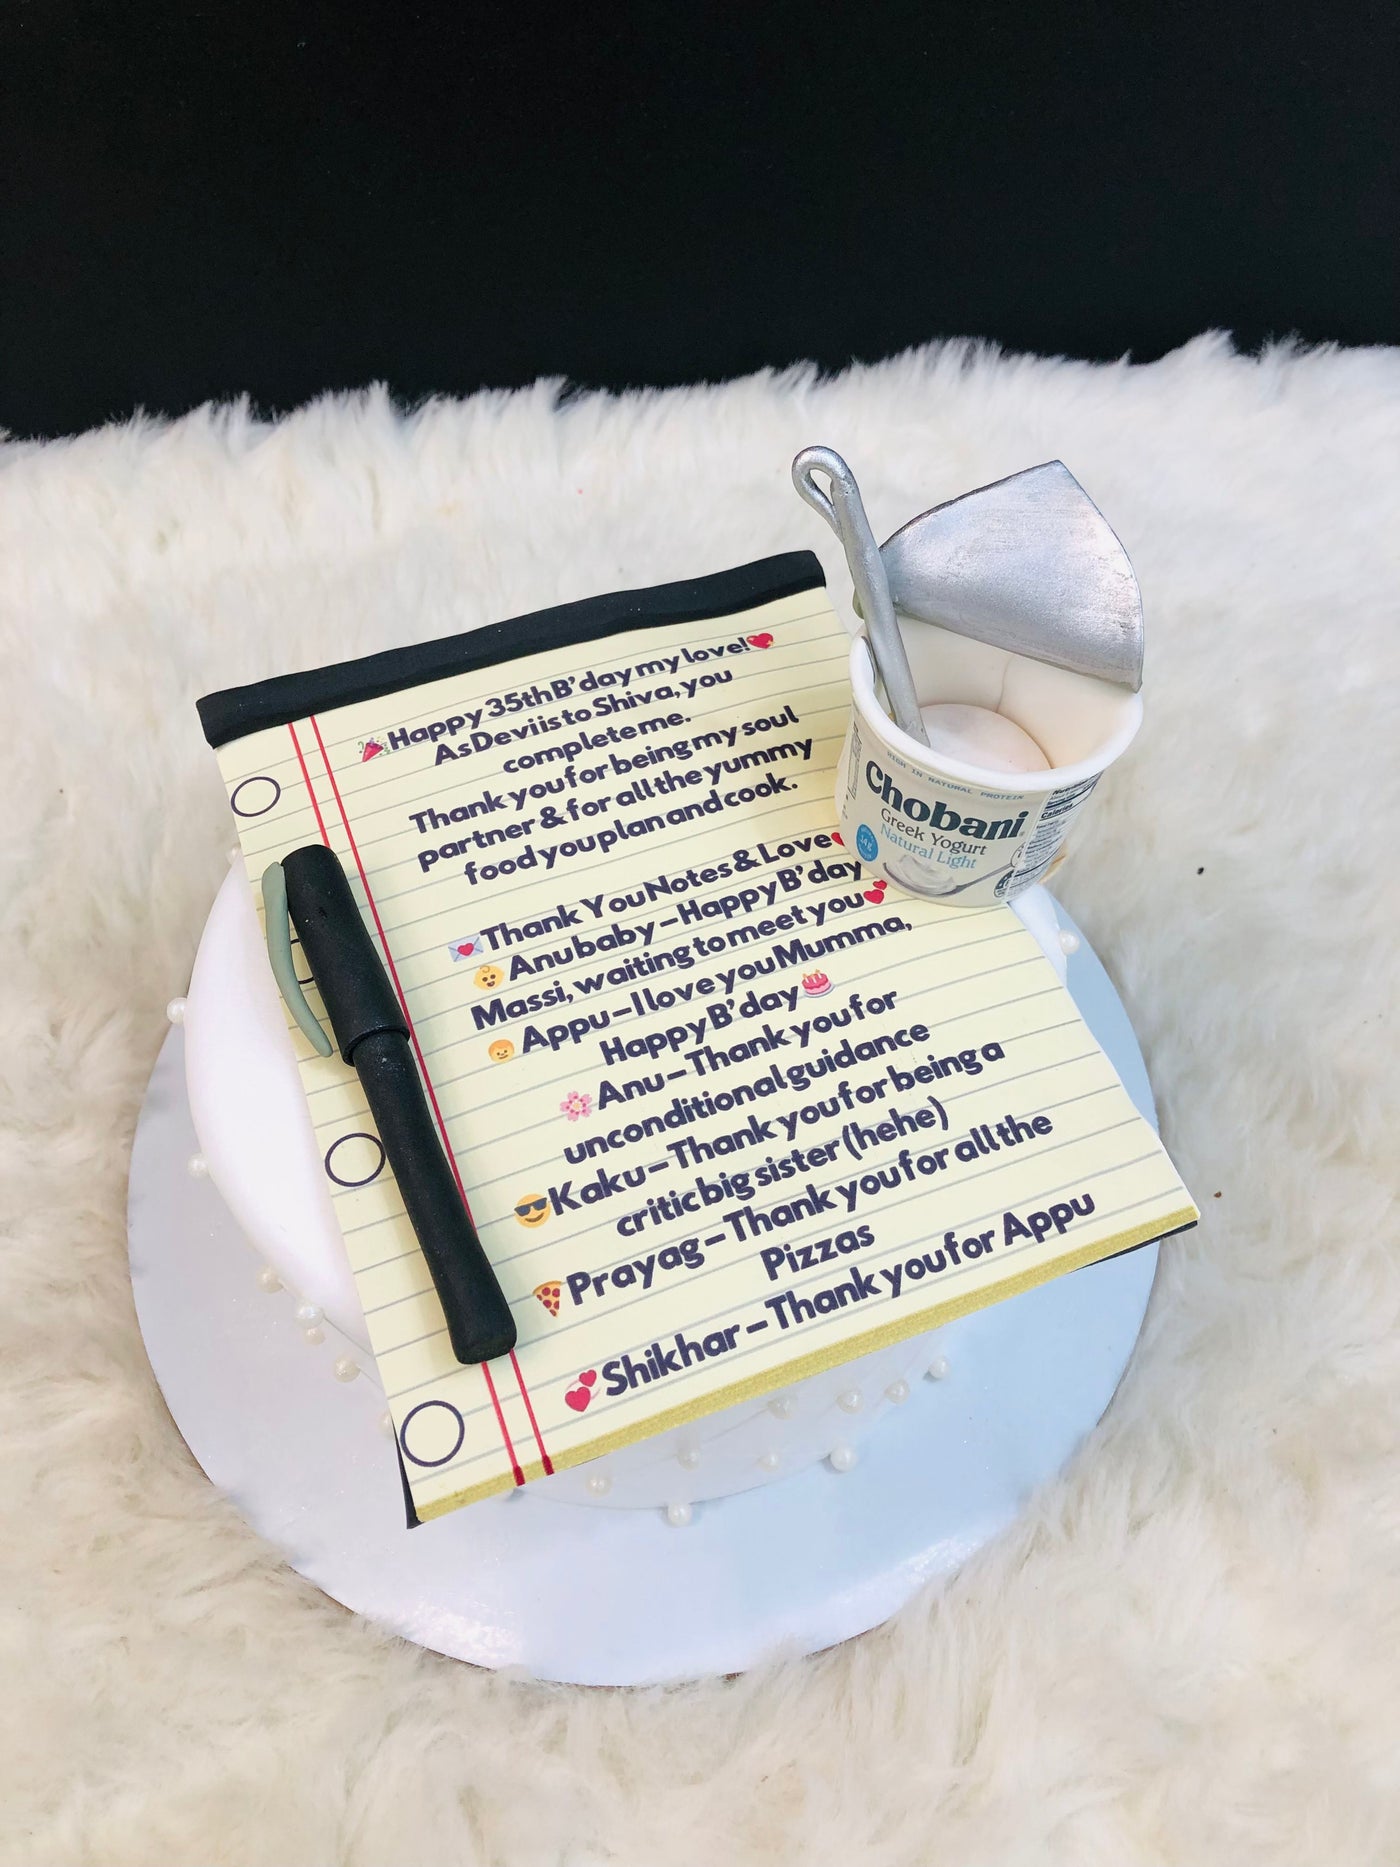 🎉Happy 35th B'day my love!💖
As Devi is to Shiva, you
complete me.
Thank you for being my soul
partner & for all the yummy
food you plan and cook.
💌Thank You Notes & Love❤
👶Anu baby – Happy B'day
Massi, waiting to meet you💕
👦Appu – I love you Mumma,
Happy B'day🎂
🌸Anu – Thank you for
unconditional guidance
😎Kaku – Thank you for being a
critic big sister (hehe)
🍕Prayag – Thank you for all the
Pizzas
💞Shikhar – Thank you for Appu
HIGH IN NATURAL PROTEIN
Chobani
Greek Yogurt
Natural Light
14g
Calories